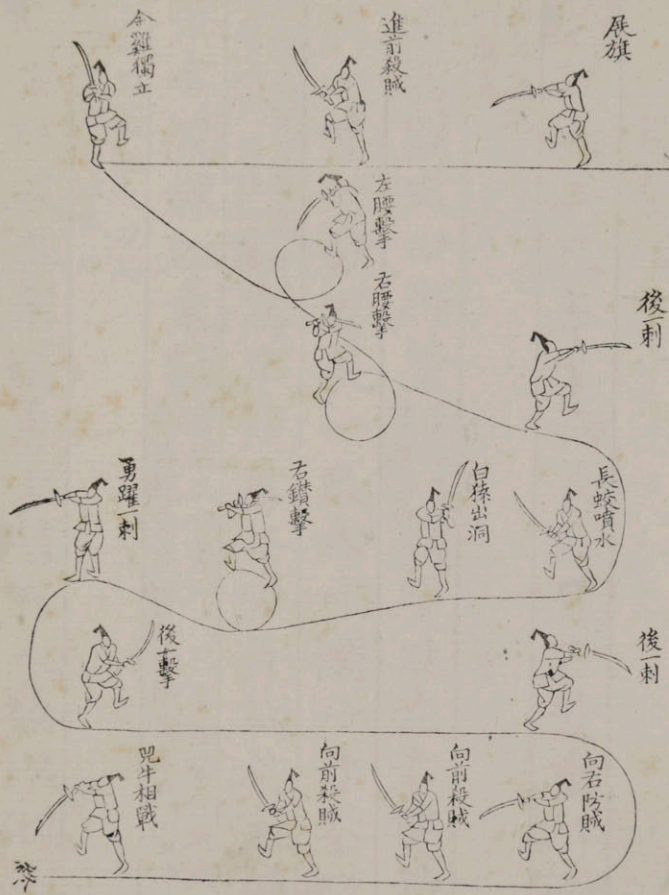 展旗
進前殺賊
金雞獨立
左腰擊
右腰擊
後一刺
長蛟噴水
白猿出洞
右鑽擊
勇躍一刺
後一擊
後一刺
向右防賊
向前殺賊
向前殺賊
兕牛相戰